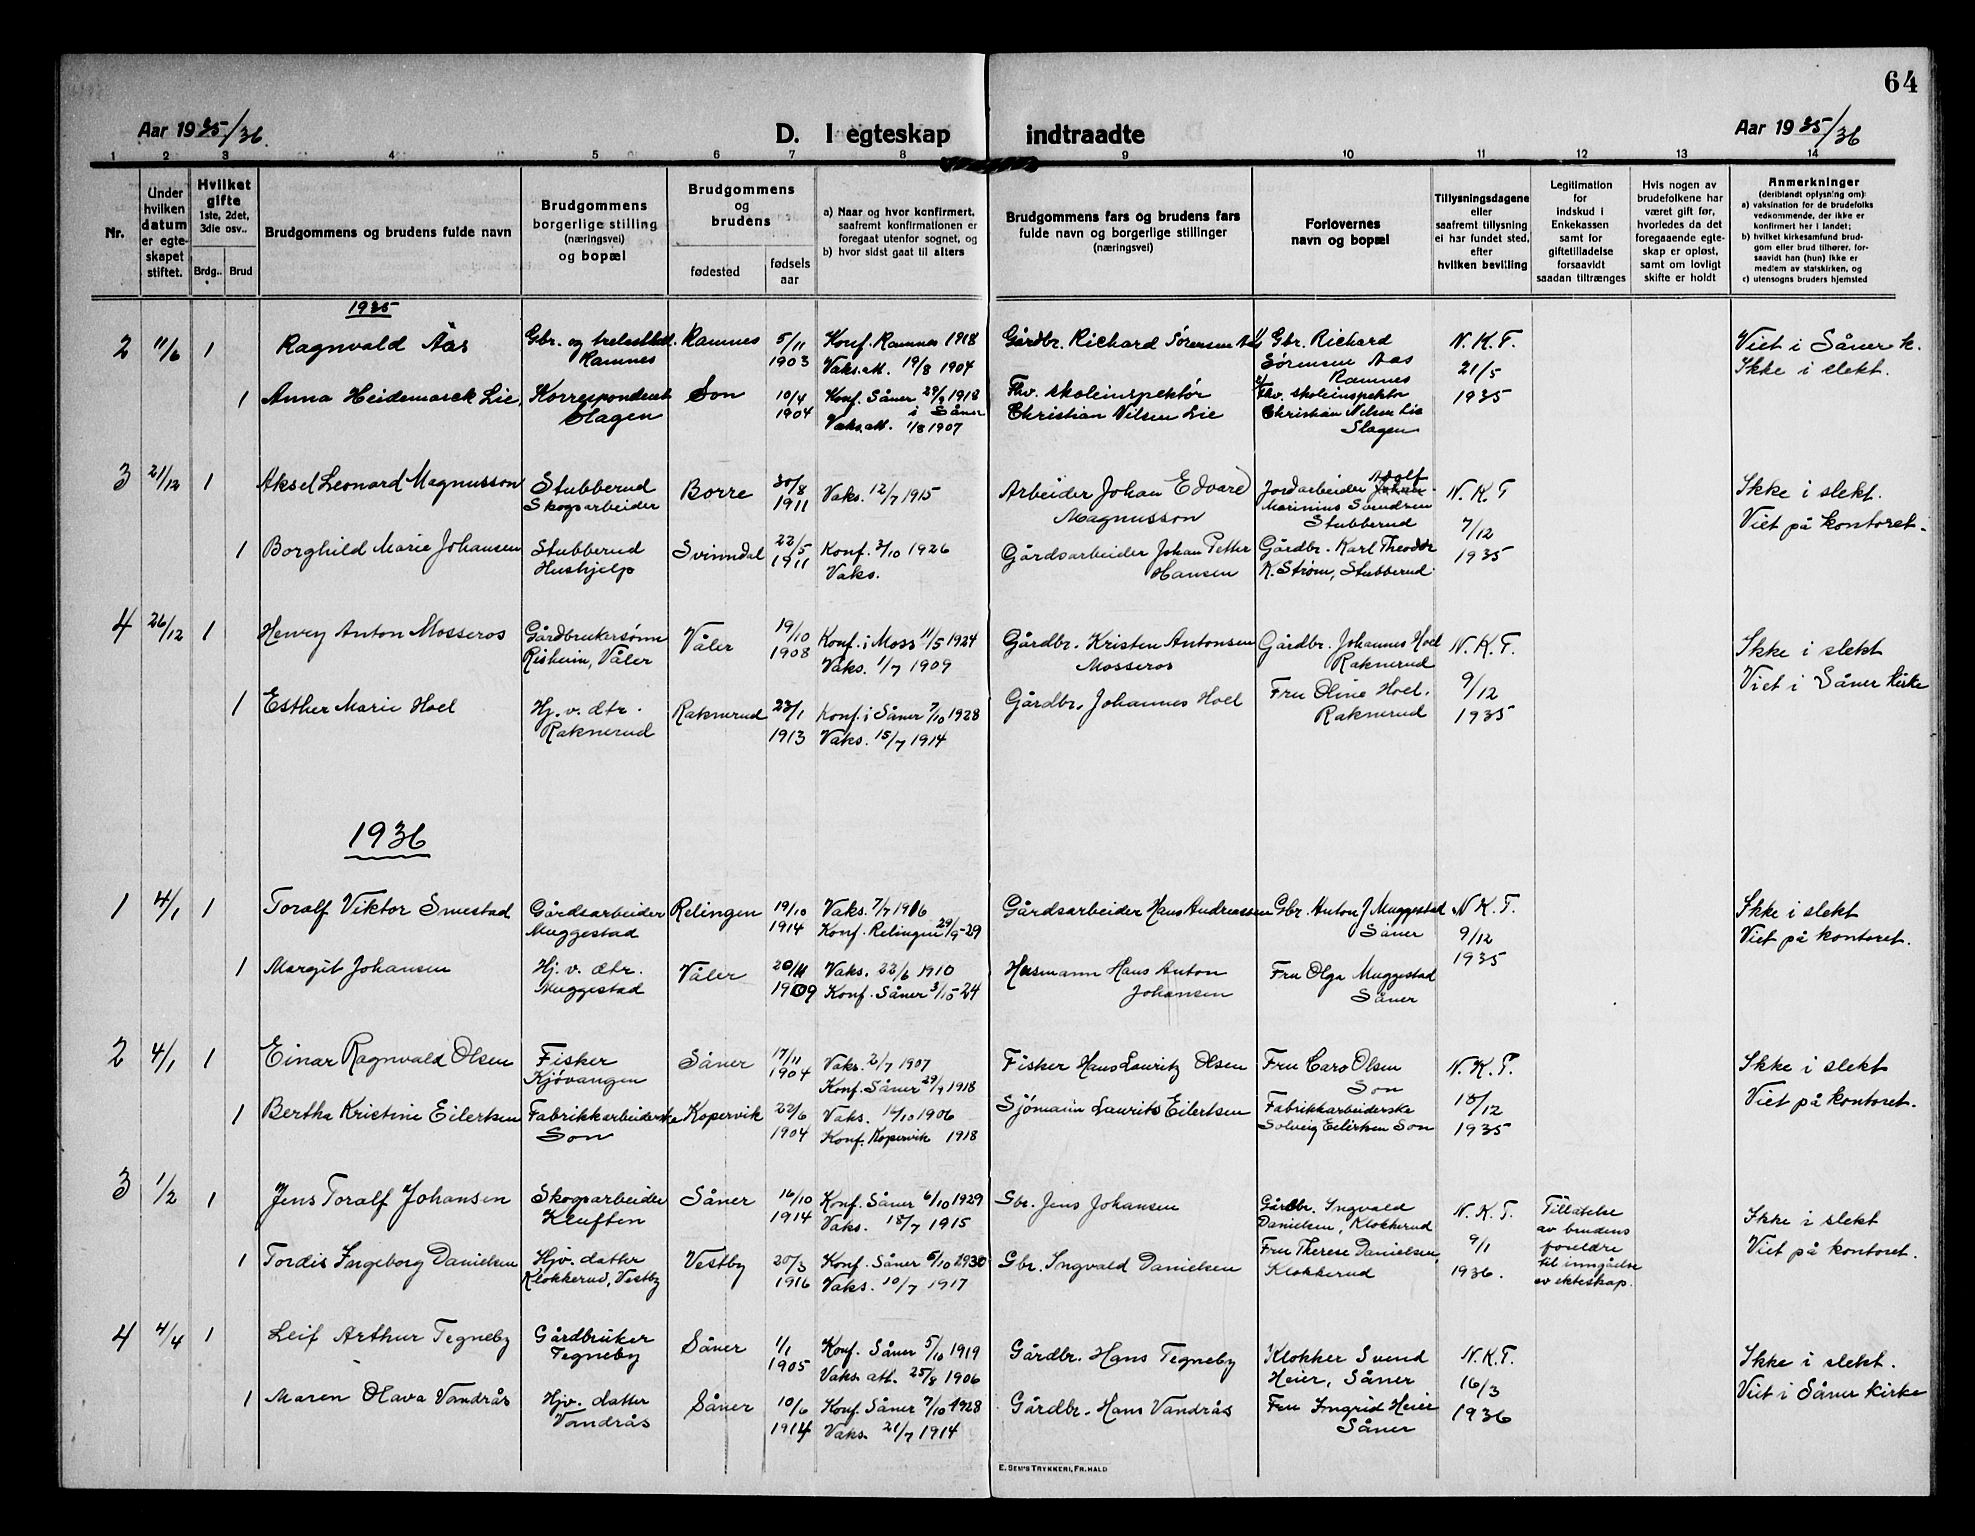 64
Aar 1935/36.
D. I egteskap indtraadte
Aar 1935/36
1 2 3 4 5 6 7 8 9 10 11 12 13 14
Nr.
Under hvilken datum er egteskapet stiftet.
Hvilket gifte 1ste, 2det, 3die osv..
Brdg..
Brud
Brudgommens og brudens fulde navn
Brudgommens borgerlige stilling (næringsvei) og bopæl
Brudgommens og brudens
fødested
fødsels aar
a) Naar og hvor konfirmert, saafremt konfirmationen er foregaat utenfor sognet, og
b) hvor sidst gaat til alters
Brudgommens fars og brudens fars fulde navn og borgerlige stillinger (næringsvei)
Forlovernes navn og bopæl
Tillysningsdagene eller saafremt tillysning ei har fundet sted, efter hvilken bevilling
Legitimation for indskud i Enkekassen samt for giftetilladelse forsaavidt saadan tiltrænges
Hvis nogen av brudefolkene har været gift før, hvorledes da det foregaaende egteskap er opløst, samt om lovligt skifte er holdt
Anmerkninger
(deriblandt oplysning om):
a) vaksination for de brudefolks vedkommende, der ikke er konfirmert her i landet;
b) hvilket kirkesamfund brudgom eller brud tilhører, forsaavidt han (hun) ikke er medlem av statskirken, og
c) utensogns bruders hjemsted
1935
2 11/6 1 Ragnvald Aas Gbr. og Ramnes Ramnes 5/11 1903 Konf. Ramnes 1918 Vaks.att. 19/8 1904 Gårdbr. Richard Sörensen Aas 1/ Gbr. Richard Sörensen Aas Ramnes N.K.T. 21/5 1935 Viet i Såner k. Ikke i slekt.
1 Anna Heidemarck Lie, Korrespondent Slagen Son 10/4 1904 Konf. Såner 29/9 1918 i Såner Vaks.att. 1/8 1907 Fhv. skoleinspektör Christian Nilsen Lie 2/ Fhv. skoleinspektör Christian Nilsen Lie Slagen
3 21/12 1 Aksel Leonard Magnusson Stubberud Skogsarbeider Borre 30/8 1911 Vaks. 12/7 1915 Arbeider Johan Edvard Magnusson Jordarbeider Adolf Johan Marinius Svendsen Stubberud N.K.T 7/12 1935 Ikke i slekt. Viet på kontoret.
1 Borghild Marie Johansen Stubberud Hushjelp Svinndal 22/5 1911 Konf. 3/10 1926 Vaks. Gårdsarbeider Johan Petter Hansen Gårdbr. Karl Theodor K. Strøm, Stubberud
4 26/12 1 Henry Anton Mosseros Gårdbrukersönn Risheim, Våler Våler 19/10 1908 Konf. i Moss 11/5 1924 Vaks. 1/7 1909 Gårdbr. Kristen Antonsen Mosseros Gårdbr. Johannes Hoel Raknerud N.K.T. 9/12 1935 Ikke i slekt Viet i Såner kirke
1 Esther Marie Hoel Hj. v. dtr. Raknerud Raknerud 23/1 1913 Konf. i Såner 7/10 1928 Vaks. 15/7 1914 Gårdbr. Johannes Hoel Fru Oline Hoel. Raknerud
1936
1 4/1 1 Toralf Viktor Smestad Gårdsarbeider Muggestad Relingen 19/10 1914 Vaks. 7/7 1916 Konf. Relingen 29/9-29 Gårdsarbeider Hans Andreassen Gbr. Anton J Muggestad Såner N.K.T. 9/12 1935 Ikke i slekt Viet på kontoret.
1 Margit Johansen Hj. v. dtr. Muggestad Våler 20/11 1909 Vaks. 22/6 1910 Konf. Såner 3/10-24 Husmann Hans Anton Johansen Fru Olga Muggestad Såner
2 4/1 1 Einar Ragnvald Olsen Fisker Kjövangen Såner 17/11 1904 Vaks. 2/7 1907 Konf. Såner 29/9 1918 Fisker Hans Lauritz Olsen Fru Caro Olsen Son N.K.T. 18/12 1935 Ikke i slekt Viet på kontoret.
1 Bertha Kristine Eilertsen Fabrikkarbeiderske Son Kopervik 22/6 1904 Vaks. 16/10 1906 Konf. Kopervik 1918 Sjömann Laurits Eilertsen Fabrikkarbeiderske Solveig Eilertsen Son
3 1/2 1 Jens Toralf Johansen Skogsarbeider Kluften Såner 16/10 1914 Konf. Såner 6/10 1929 Vaks. 18/7 1915 Gbr. Jens Johansen Gårdbr. Ingvald Danielsen, Klokkerud N.K.T. 9/1 1936. Tillatelse av brudens foreldre til inngåelse av ekteskap. Ikke i slekt Viet på kontoret.
1 Tordis Ingeborg Danielsen Hjv. datter Klokkerud, Vestby Vestby 20/3 1916 Konf. Såner 5/10 1930 Vaks. 10/7 1917 Gbr. Ingvald Danielsen Fru Therese Danielsen, Klokkerud
4 4/4 1 Leif Arthur Tegneby Gårdbruker Tegneby Såner 1/1 1905 Konf. Såner 5/10 1919 Vaks. att. 25/8 1906 Gårdbr. Hans Tegneby Klokker Svend Heier, Såner N.K.T. 16/3 1936 Ikke i slekt. Viet i Såner kirke
1 Maren Olava Vandrås Hjv. datter Vandrås Såner 10/6 1914 Konf. Såner 7/10 1928 Vaks. 21/7 1914 Gårdbr. Hans Vandrås Fru Ingrid Heier Såner
E. SEM'S TRYKKERI, FR.HALD